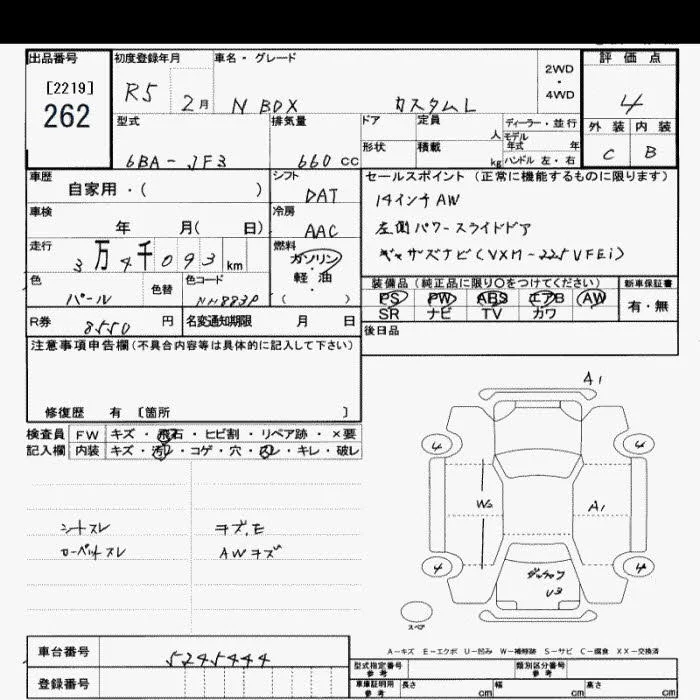 出品番号 初度登録年月 車名・グレード 2WD・4WD 評価点
[2219]
262
R5 2月 N BOX カスタムL 4
型式 排気量 ドア 定員 人 ディーラー・並行 外装 内装
モデル年式 年
形状 積載 kg ハンドル 左・右
6BA-JF3 660 CC C B
車歴 シフト セールスポイント (正常に機能するものに限ります)
自家用・( ) DAT 14インチAW
車検 冷房 左側パワースライドドア
年 月( 日) AAC
走行 燃料 ギャザズナビ(VXM-225VFEi)
3万4千093km ガソリン・軽油( )
色 色替 色コード 装備品 (純正品に限り○をつけてください) 新車保証書
パール NH883P PS PW ABS エアB AW 有・無
SR ナビ TV カワ
R券 8550円 名変通知期限 月 日 後日品
注意事項申告欄(不具合内容等は具体的に記入して下さい)
修復歴 有 〔箇所 〕
検査員 FW キズ・飛石・ヒビ割・リペア跡・×要
記入欄 内装 キズ・汚れ・コゲ・穴・スレ・キレ・破レ
A1
4 4
W2 A1
シートスレ キズ、E
カーペットスレ AWキズ
4 4
U3
スペア
A-キズ E-エクボ U-凹み W-補修跡 S-サビ C-腐食 XX-交換済
車台番号 5245444
登録番号
型式指定番号 参考 類別区分番号 参考
車庫証明用 参考 長さ cm 幅 cm 高さ cm